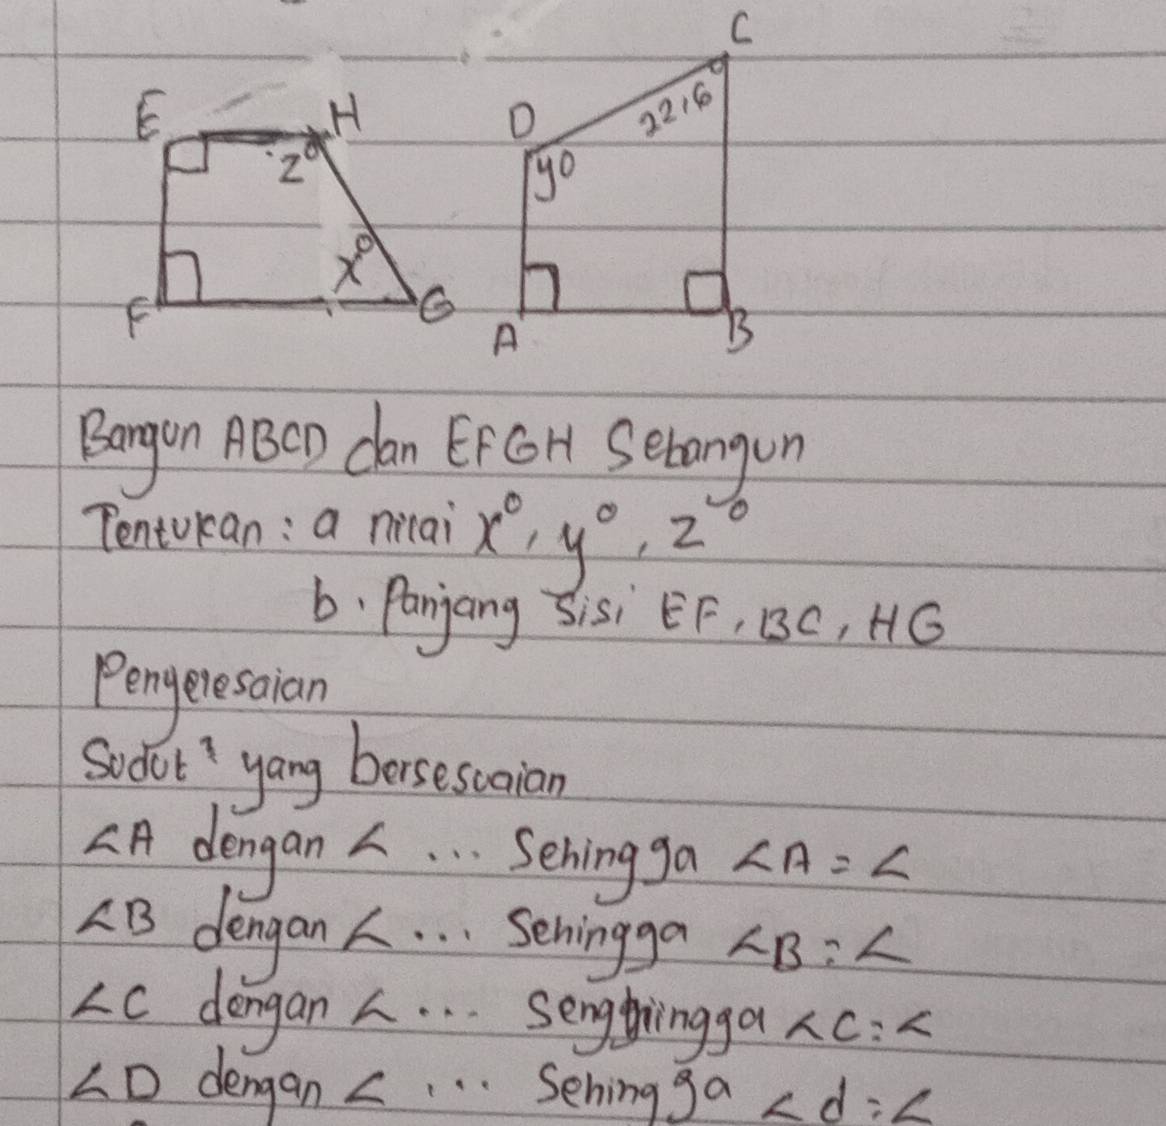 C
E H D 22,6
z° y°
x°
F G A B
Bangun ABCD dan EFGH Sebangun
Tentukan : a nilai x°, y°, z°
b. Panjang sisi EF, BC, HG
Penyelesaian
Sudut² yang bersesuaian
∠A dengan ∠ ... Sehingga ∠A = ∠
∠B dengan ∠ ... Sehingga ∠B = ∠
∠C dengan ∠ ... Senghingga ∠C = ∠
∠D dengan ∠ ... Sehingga ∠d = ∠